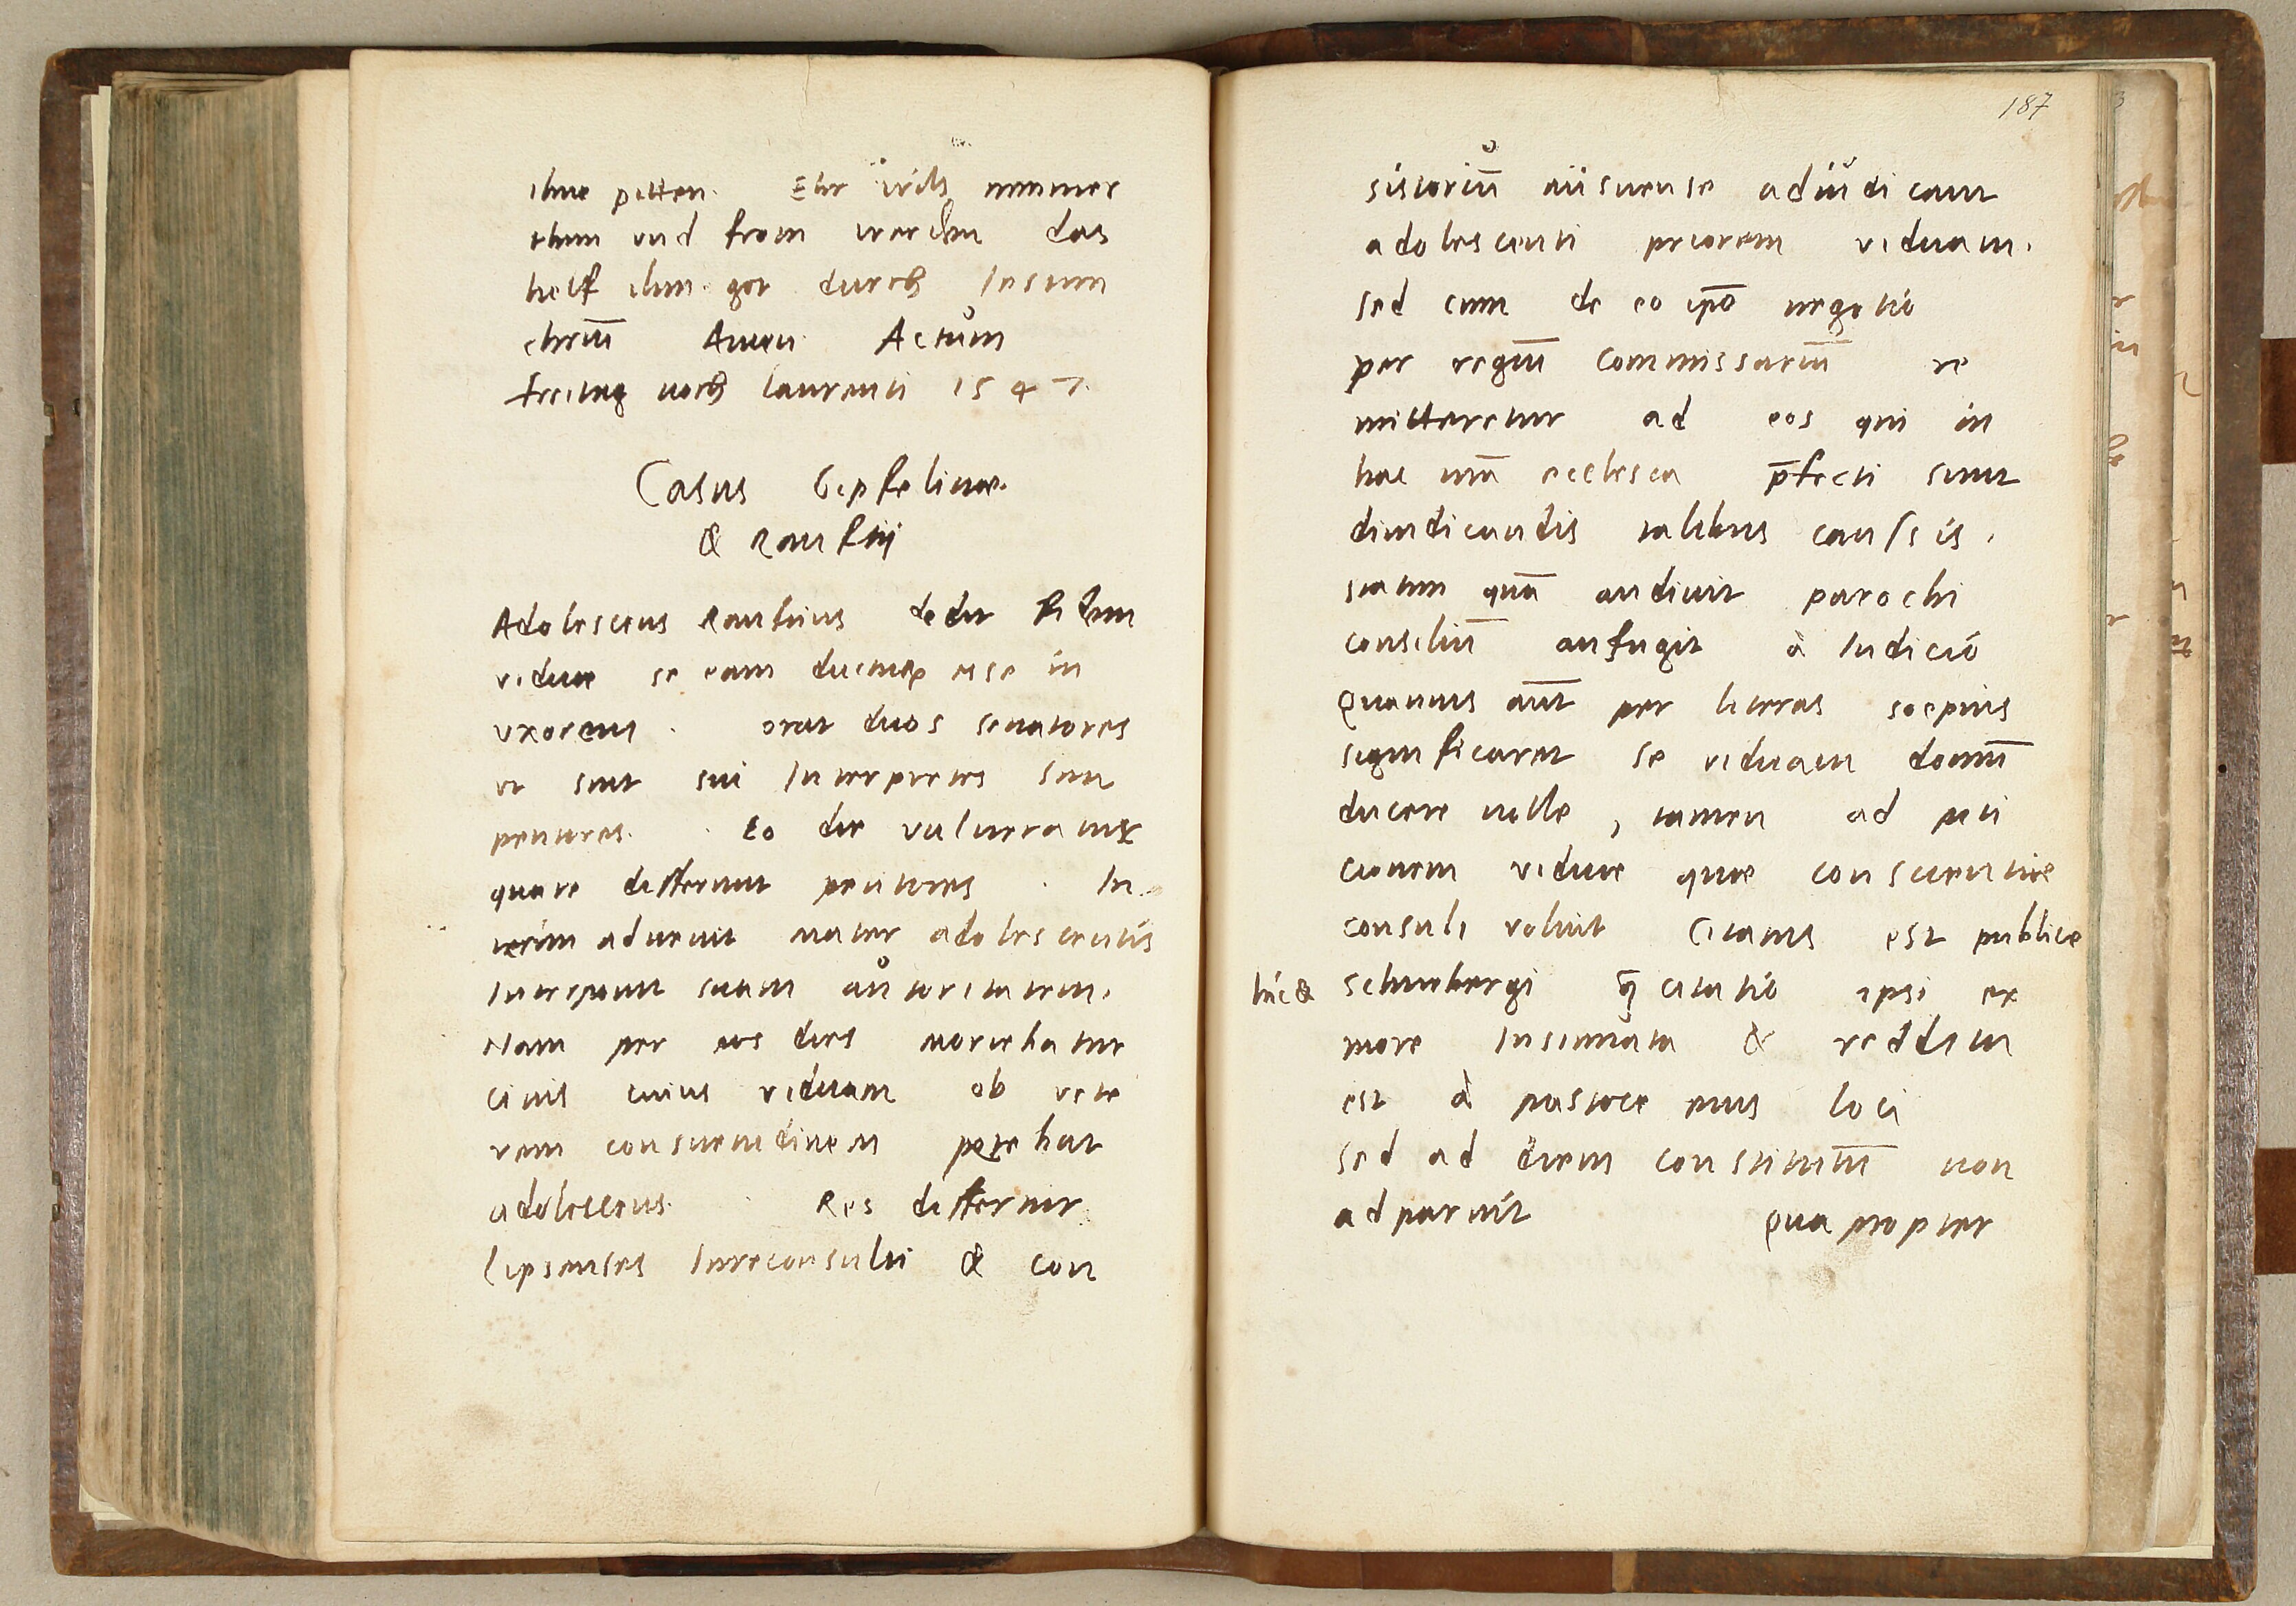 ihne pitten. Ehr wils nimmer
thun und from werden das
helf ihm got durch Iesum
christū Amen. Actum
freitag noch laurenti 1547.
Casus Gipfelinae
& Raufftij
Adolescens Rauftius dedit fidem
viduae se eam ducturū esse in
uxorem. orat duos senatores
ut sint sui Interpretes seu
petitores. Eo die vulneratur
quare differunt petitores. In
terim advenit mater adolescentis
Interponit suam autoritatem.
Nam per eos dies moriebatur
civis cuius viduam ob vete
rem consuetudinem petebat
adolescens. Res differtur
Lipsenses Iureconsulti & con
187
sistoriū misnense adiudicant
adolescenti priorem viduam.
sed cum de eo ipō negotio
per regiū Commissariū re
mitteretur ad eos qui in
hac nrā ecclesia p̄fecti sunt
diiudicandis talibus caussis,
statim quā audivit parochi
consiliū aufugit à Iudicio
Quamvis aūt per literas saepius
significaret se viduam domū
ducere velle, tamen ad peti
cionem viduae quae conscientiae
consuli voluit Citatus est publice
hic & Schnebergi q̄ citatio ipsi ex
more Insinuata & reddita
est à pastore eius loci
sed ad diem constitutū non
adparuit Quapropter